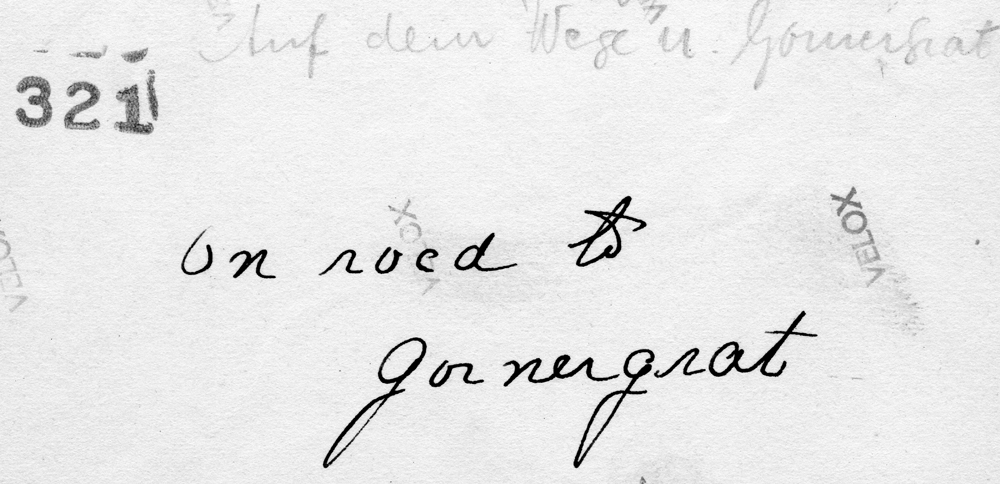 Auf dem Wege n. Gornergrat
321
VELOX
VELOX
VELOX
On road to
Gornergrat